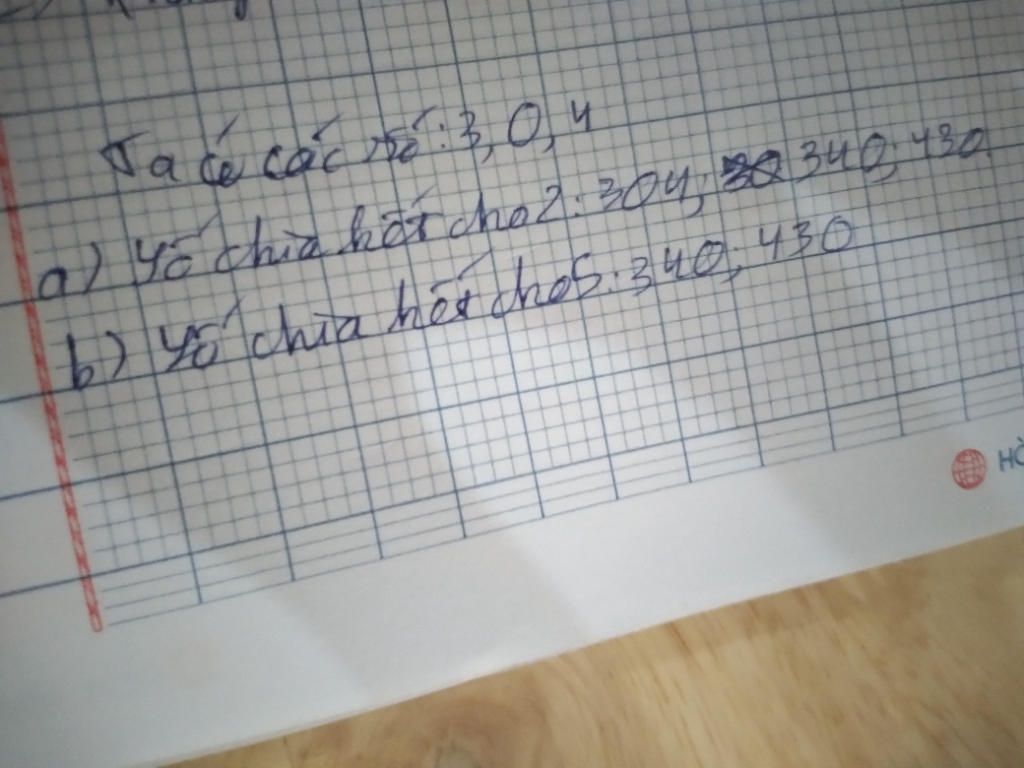 Ta có các số: 3, 0, 4
a) Số chia hết cho 2: 304; 340; 430.
b) Số chia hết cho 5: 340; 430
HÒ